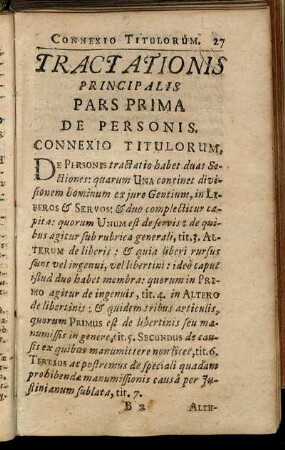 CONNEXIO TITULORUM. 27
TRACTATIONIS
PRINCIPALIS
PARS PRIMA
DE PERSONIS.
CONNEXIO TITULORUM,
DE PERSONIS tractatio habet duas Se-
ctiones: quarum UNA continet divi-
sionem hominum ex jure Gentium, in LI-
BEROS & SERVOS: & duo complectitur ca-
pita: quorum UNUM est de servis: de qui-
bus agitur sub rubrica generali, tit. 3. AL-
TERUM de liberis: & quia liberi rursus
sunt vel ingenui, vel libertini: ideò caput
istud duo habet membra: quorum in PRI-
MO agitur de ingenuis, tit. 4. in ALTERO
de libertinis: & quidem tribus articulis,
quorum PRIMUS est de libertinis seu ma-
numissis in genere, tit. 5. SECUNDUS de cau-
sis ex quibus manumittere non licet, tit. 6.
TERTIUS ac postremus de speciali quadam
prohibendæ manumissionis causâ per Ju-
stinianum sublata, tit. 7.
B 2 ALTE-